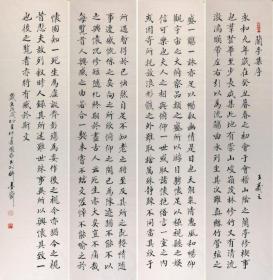 蘭亭集序
王羲之
永和九年歲在癸丑暮春之初會于會稽山陰之蘭亭修禊事
也群賢畢至少長咸集此地有崇山峻嶺茂林修竹又有清流
激湍映帶左右引以為流觴曲水列坐其次雖無絲竹管弦之
盛一觴一詠亦足以暢敘幽情是日也天朗氣清惠風和暢仰
觀宇宙之大俯察品類之盛所以遊目騁懷足以極視聽之娛
信可樂也夫人之相與俯仰一世或取諸懷抱悟言一室之內
或因寄所託放浪形骸之外雖趣舍萬殊靜躁不同當其欣於
所遇暫得於己快然自足不知老之將至及其所之既倦情隨
事遷感慨係之矣向之所欣俯仰之間已為陳跡猶不能不以
之興懷況修短隨化終期於盡古人云死生亦大矣豈不痛哉
每覽昔人興感之由若合一契未嘗不臨文嗟悼不能喻之於
懷固知一死生為虛誕齊彭殤為妄作後之視今亦猶今之視
昔悲夫故列敘時人錄其所述雖世殊事異所以興懷其致一
也後之覽者亦將有感於斯文